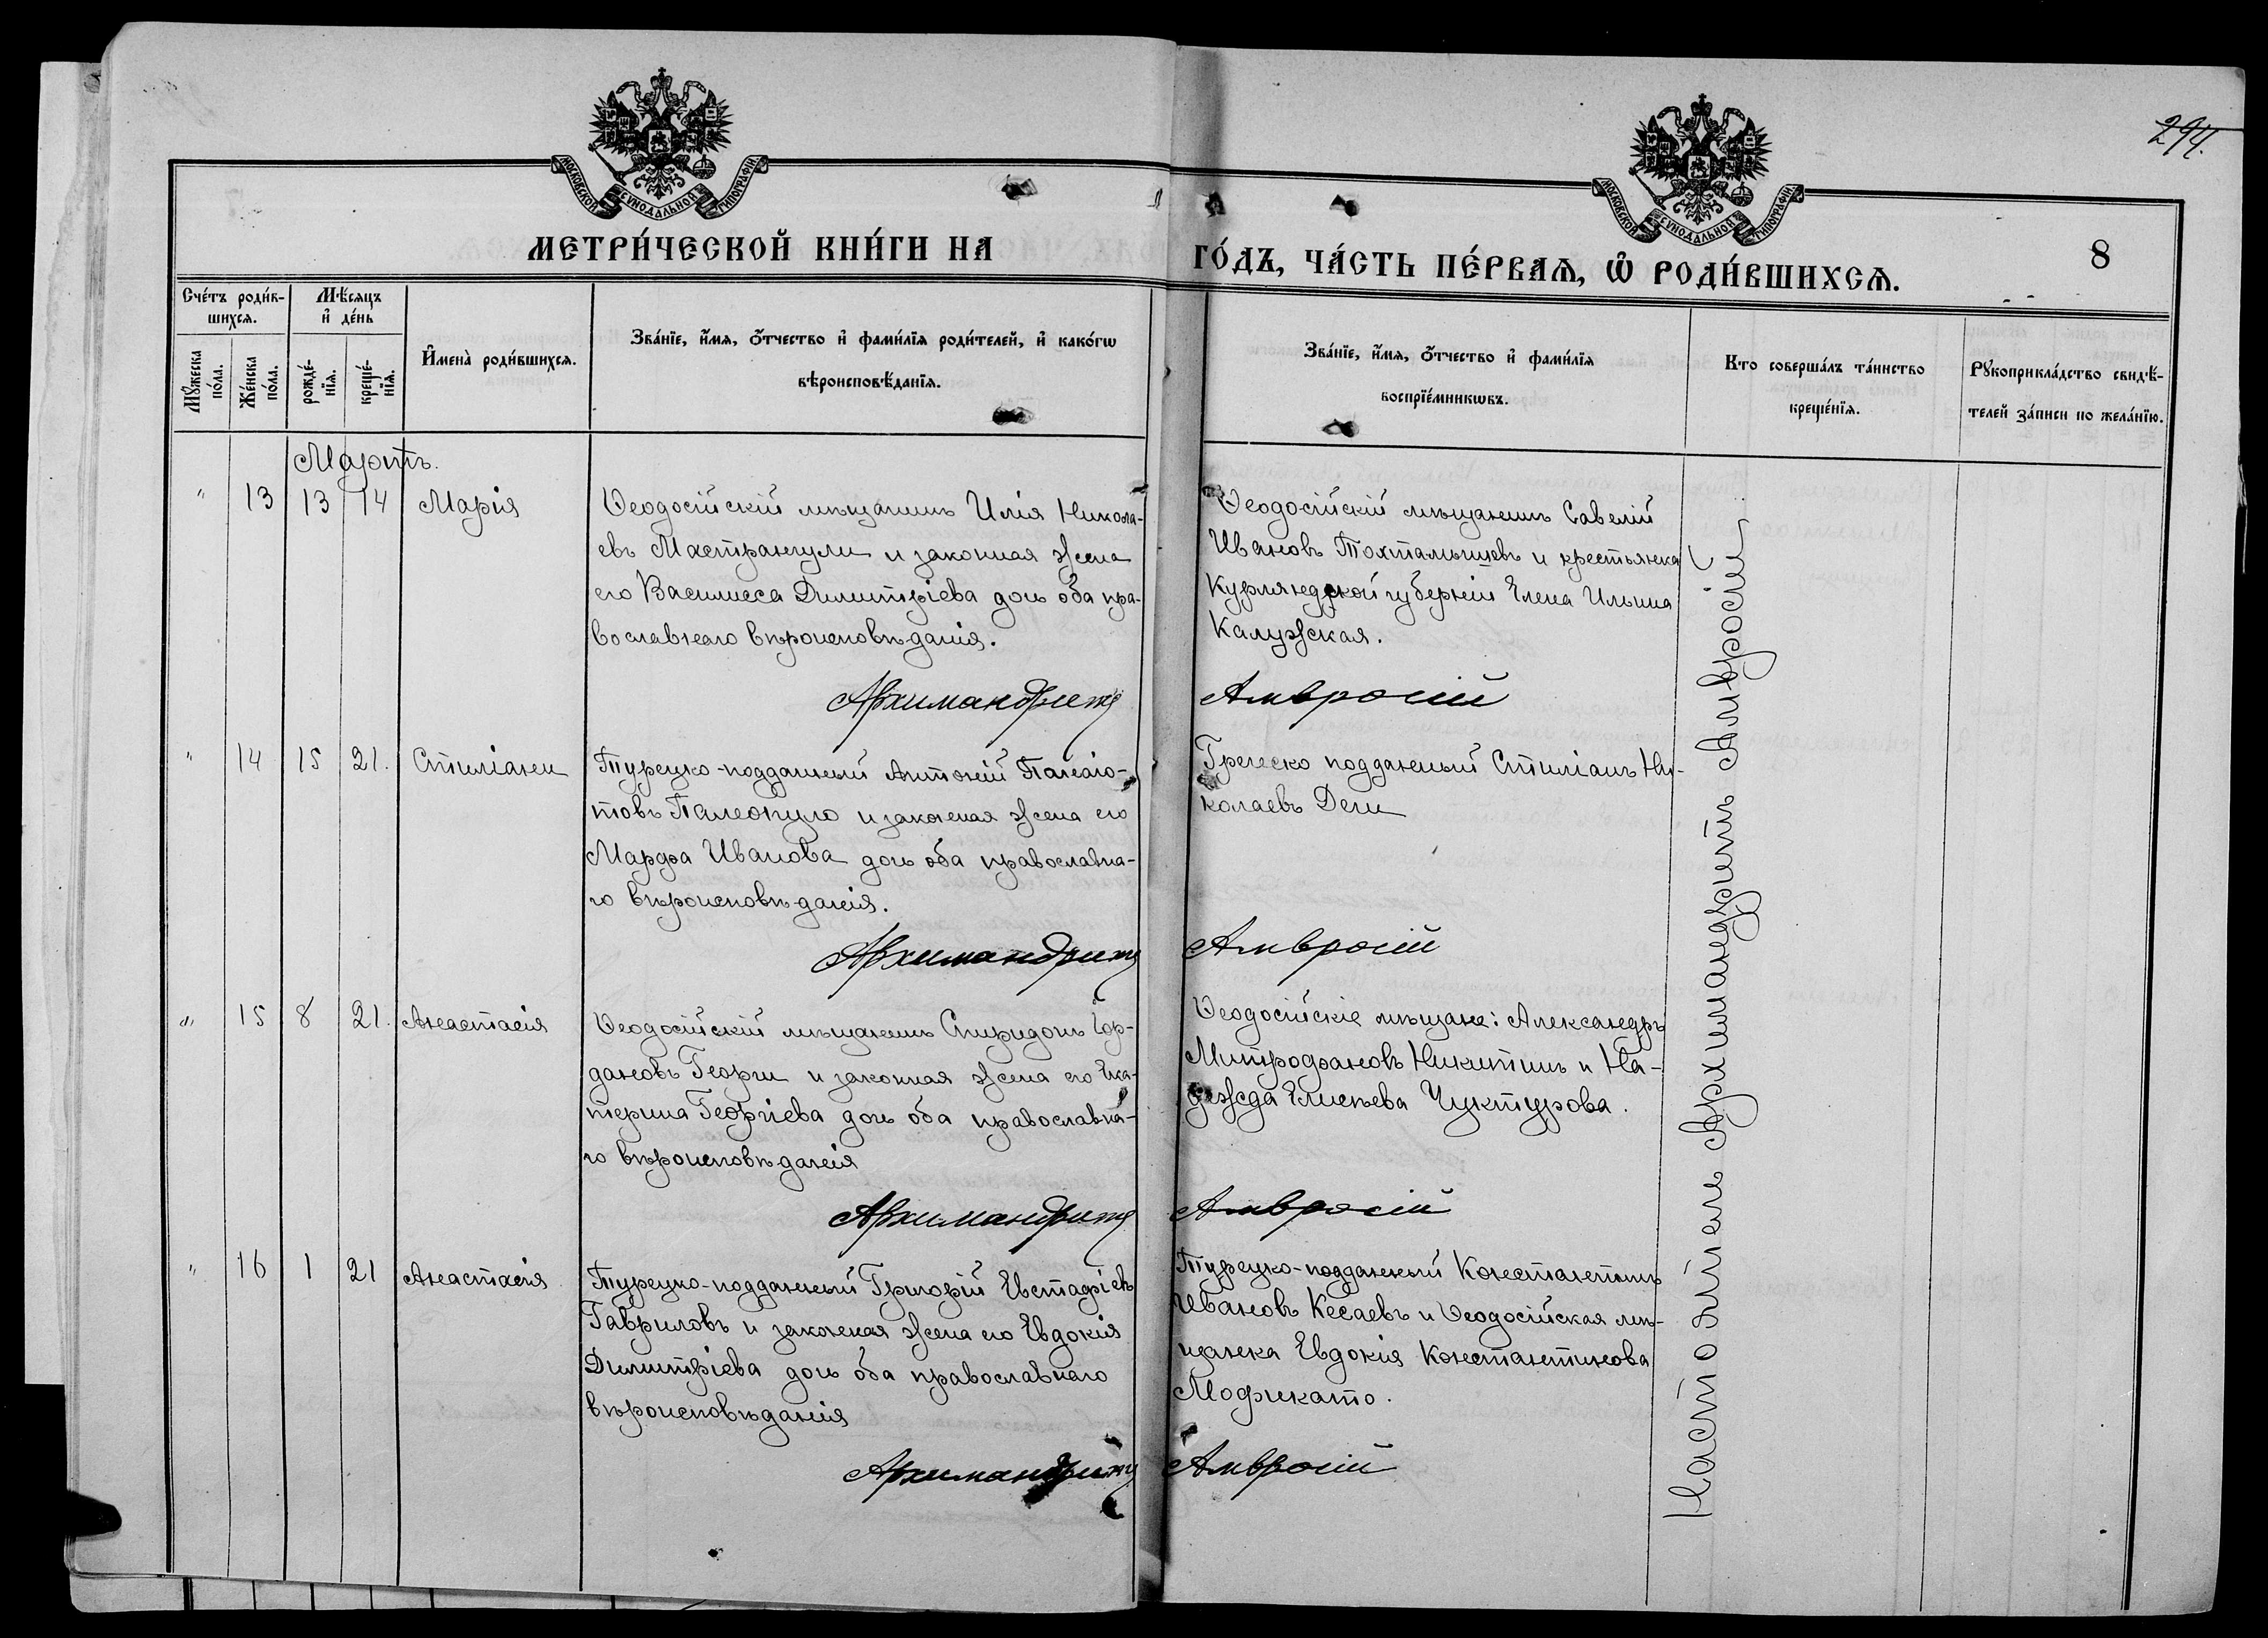 294.
МОСКОВСКОЙ СѴНОДАЛЬНОЙ ТИПОГРАФІИ
МОСКОВСКОЙ СѴНОДАЛЬНОЙ ТИПОГРАФІИ
МЕТРИ́ЧЕСКОЙ КНИ́ГИ НА ГО́ДЪ, ЧА́СТЬ ПЕ́РВАѦ, Ѽ РОДИ́ВШИХСѦ.
8
Сче́тъ роди́в-
шихсѧ.
Мꙋжеска
по́ла.
Же́нска
по́ла.
Мѣ́сѧцъ
и҆ де́нь
рожде́-
нїѧ.
креще́-
нїѧ.
И҆мена̀ роди́вшихсѧ.
Зва́нїе, и҆́мѧ, ѻ҆́тчество и҆ фами́лїѧ роди́телей, и҆ како́гѡ
вѣроисповѣ́данїѧ.
Зва́нїе, и҆́мѧ, ѻ҆́тчество и҆ фами́лїѧ
воспрїе́мникѡвъ.
Кто соверша́лъ та́инство
креще́нїѧ.
Рꙋкоприкла́дство свидѣ́-
телей за́писи по жела́нїю.
Мартъ.
" 13 13 14 Марія
Ѳеодосійскій мѣщанинъ Илія Никола-
евъ Мастрангули и законная жена
его Василиса Димитріева дочь оба пра-
вославнаго вѣроисповѣданія.
Ѳеодосійскій мѣщанинъ Савелій
Ивановъ Тохтамышевъ и крестьянка
Курляндской губерніи Елена Ильина
Калужская.
Архимандритъ Амвросій
" 14 15 21. Стиліани
Турецко-подданный Антоній Панаіо-
товъ Палеопуло и законная жена его
Марфа Иванова дочь оба православна-
го вѣроисповѣданія.
Греческо подданный Стиліанъ Ни-
колаевъ Дели
Архимандритъ Амвросій
" 15 8 21. Анастасія
Ѳеодосійскій мѣщанинъ Спиридонъ Іор-
дановъ Георги и законная жена его Ека-
терина Георгіева дочь оба православна-
го вѣроисповѣданія
Ѳеодосійскіе мѣщане: Александръ
Митрофановъ Никитинъ и На-
дежда Елисѣева Чуктурова.
Архимандритъ Амвросій
" 16 1 21 Анастасія
Турецко-подданный Григорій Евстафіевъ
Гавриловъ и законная жена его Евдокія
Димитріева дочь оба православнаго
вѣроисповѣданія
Турецко-подданный Константинъ
Ивановъ Кесаевъ и Ѳеодосійская мѣ-
щанка Евдокія Константинова
Мофикато.
Архимандритъ Амвросій
Настоятель Архимандритъ Амвросій